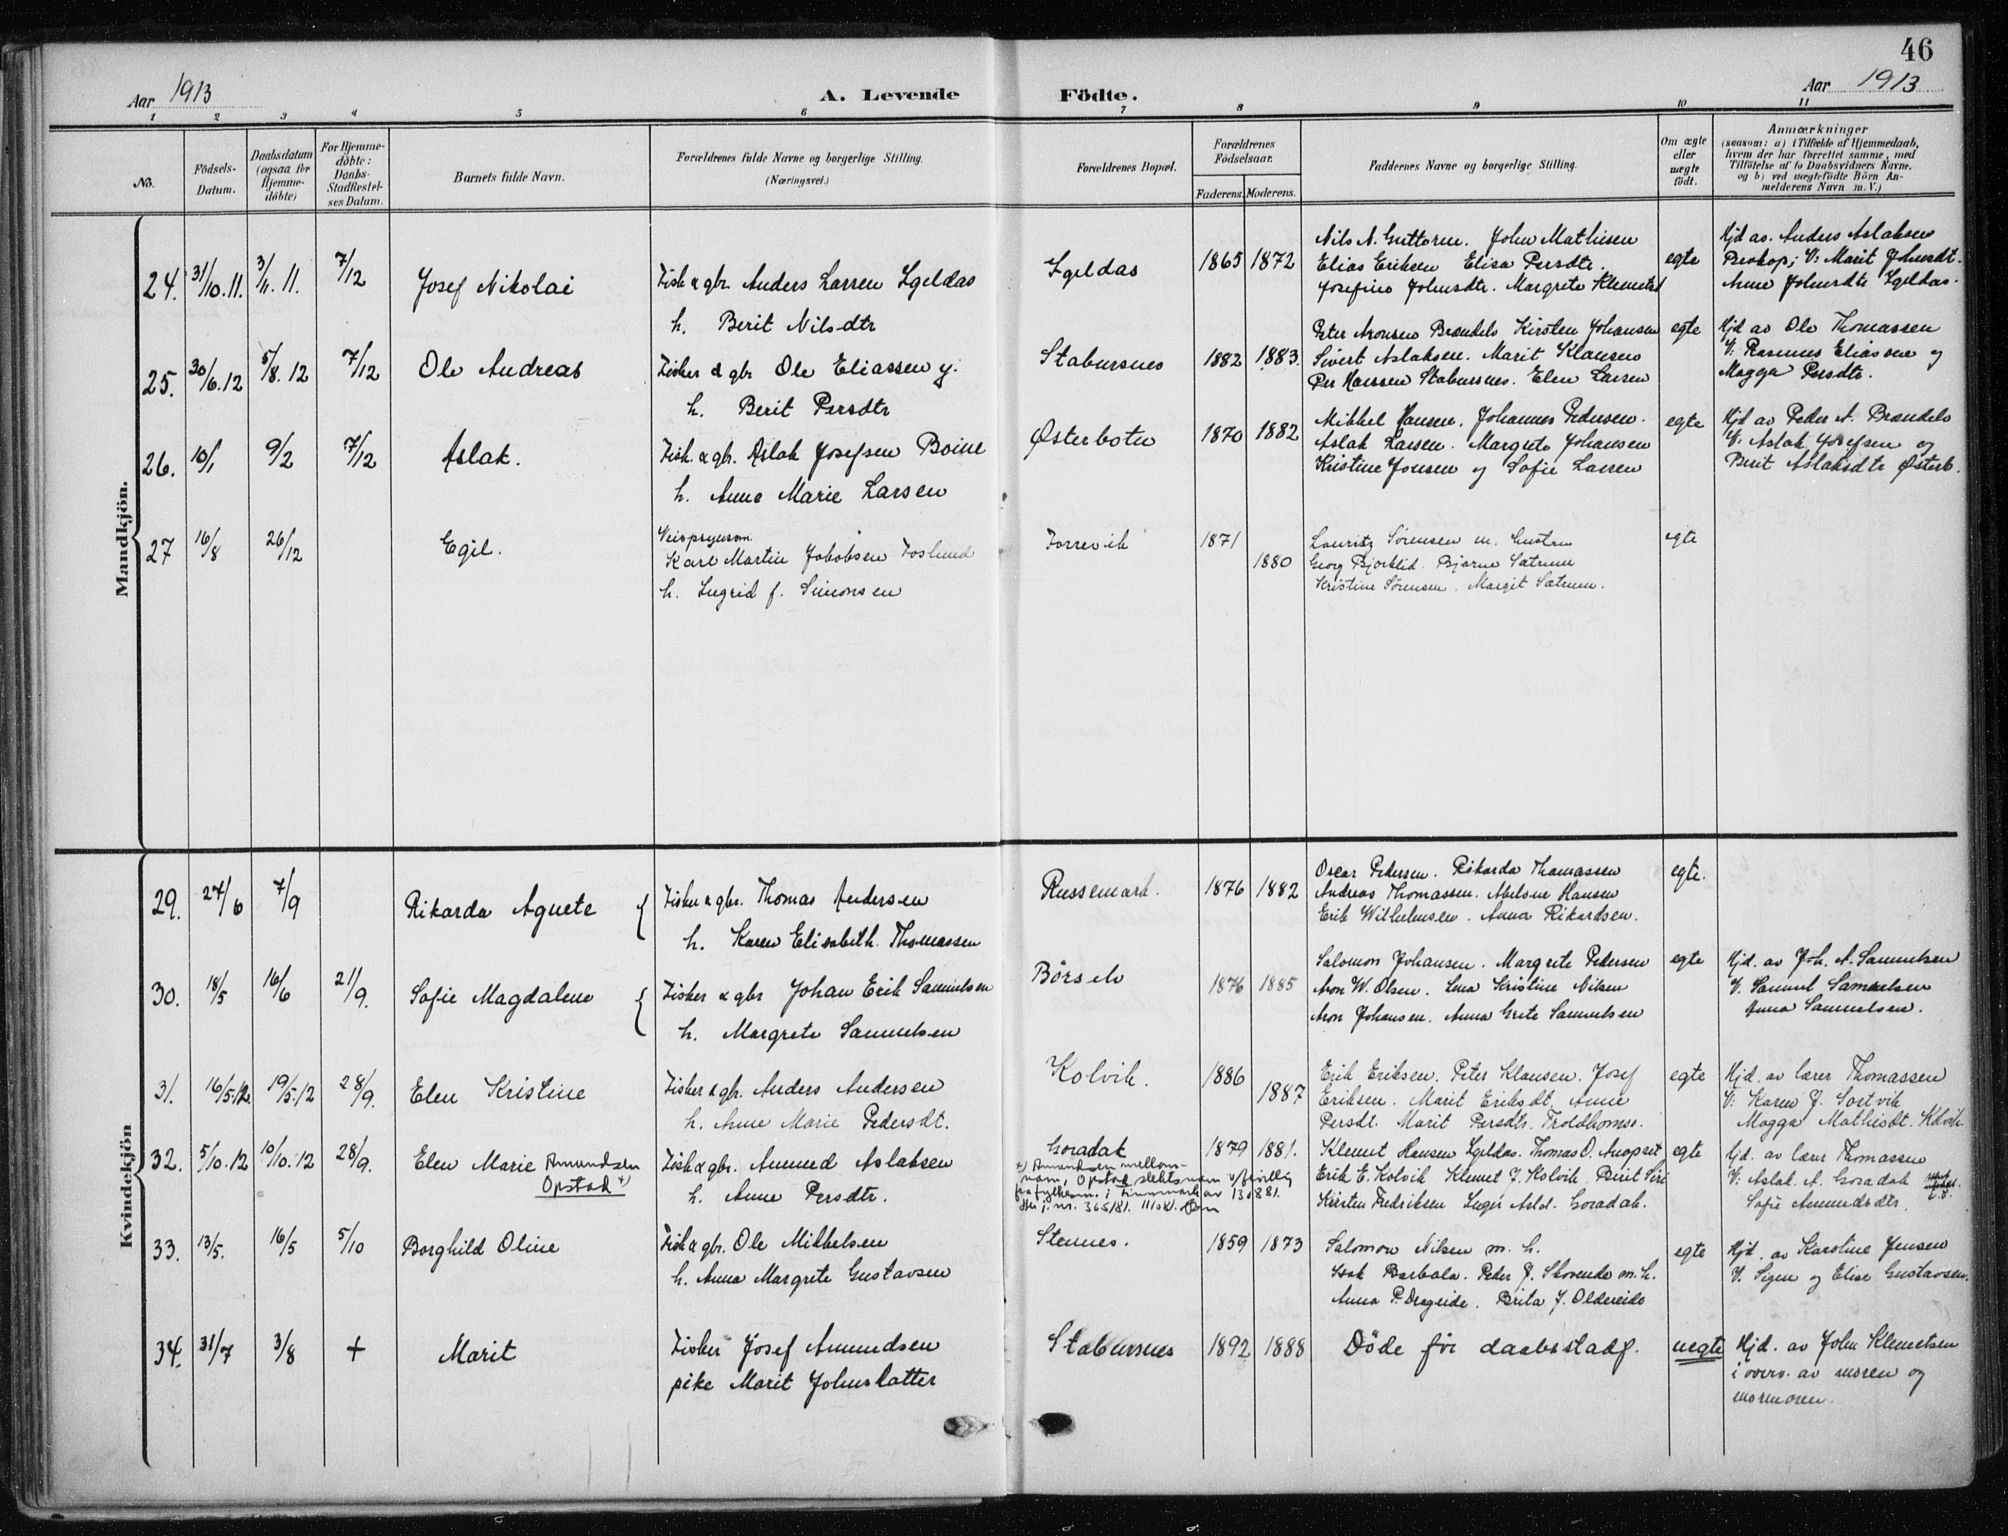 46
Aar 1913
A. Levende Födte.
Aar 1913
1 2 3 4 5 6 7 8 9 10 11
No.
Födsels-
Datum.
Daabsdatum
(ogsaa for
Hjemme-
döbte)
For Hjemme-
döbte:
Daabs-
Stadfæstel-
ses Datum.
Barnets fulde Navn.
Forældrenes fulde Navne og borgerlige Stilling.
(Næringsvei.)
Forældrenes Bopæl.
Forældrenes
Födselsaar.
Faderens. Moderens.
Faddernes Navne og borgerlige Stilling.
Om ægte
eller
uægte
födt.
Anmærkninger
(saasom: a) i Tilfælde af Hjemmedaab,
hvem der har forrettet samme, med
Tilföielse af to Daabsvidners Navne,
og b) ved uægtefödte Börn An-
melderens Navn m. V.)
Mandkjön.
24. 31/10.11. 3/11.11. 7/12 Josef Nikolai
Fisk & gbr. Anders Larsen Igeldas
h. Berit Nilsdtr
Igeldas 1865 1872
Nils N. Guttorm. John Mathisen
Elias Eriksen Elisa Persdtr.
Josefine Johnsdtr. Margrete Klemetsd
egte
Hjd av. Anders Aslaksen
V: Marit Johnsdt.
Anne Johnsdtr Igeldas.
25. 30/6.12 5/8.12 7/12 Ole Andreas
Fisker & gbr Ole Eliassen y.
h. Berit Persdtr
Stabursnes 1882 1883.
Peter Aronsen Brændelv Kirsten Johansen
Sivert Aslaksen. Marit Klausen
Per Hansen Stabursnes. Elen Larsen
egte
Hjd av Ole Thomassen
V: Rasmus Eliassen og
Magga Persdtr.
26. 10/1 9/2 7/12 Aslak.
Fisk. & gbr. Aslak Josefsen Boine
h. Anne Marie Larsen
Østerbotn 1870 1882
Mikkel Hansen. Johannes Pedersen.
Aslak Larsen. Margrete Johansen
Kristine Jonsen og Sofie Larsen
egte
Hjd av Peder A. Brændelv
V: Aslak Josefsen og
Berit Aslaksdtr Østerb.
27 16/8 26/12 Egil.
Karl Martin Jakobsen
h. Ingrid f. Simonsen
Torrevik 1871
1880
Lauritz Sørensen m. hustru
Georg Bjorklid. Bjarne Sætrum
Kristine Sørensen. Margit Sætrum.
egte
Kvindekjön
29. 27/6 7/9 Rikarda Agnete
Fisker & gbr. Thomas Andersen
h. Karen Elisabeth Thomassen
Russemark. 1876 1882
Oscar Pedersen. Rikarda Thomassen
Andreas Thomassen. Hansen
Erik Wilhelmsen. Anna Rikardsen.
egte.
30. 18/5 16/6 21/9. Sofie Magdalene
Fisker & gbr Johan Erik Samuelsen
h. Margrete Samuelsen
Børselv 1876 1885
Salomon Johansen. Margrete Pedersen
Aron W. Olsen. Lena Kristine Nilsen
Aron Johansen. Anna Grete Samuelsen
egte
Hjd. av Joh. A. Samuelsen
V. Samuel Samuelsen
Anna Samuelsen.
31. 16/5.12 19/5.12 28/9. Elen Kristine
Fisker & gbr. Anders Andersen
h. Anne Marie Pedersdt.
Kolvik. 1886
1887
Erik Eriksen. Peter Klausen. Josef
Eriksen. Marit Eriksdt. Anne
Persdt. Marit Persdtr. Troldholmsn.
egte
Hjd. av lærer Thomassen
V: Karen J. Sortvik
Magga Mathisdt. Kolvik
32. 5/10.12 10/10.12 28/9. Elen Marie Amundsen
Opstad x)
Fisk & gbr. Amund Aslaksen
h. Anne Persdtr.
Goradak 1879 1881.
x) Amundsen mellom-
navn, Opstad slektsnavn
Klemet Hansen Igeldas. Thomas O.
Erik E. Kolvik Klemet J. Kolvik. Birit Siri
Kirsten Fredriksen Inger Asld. Goradak.
egte
Hjd. av lærer Thomassen
V: Aslak. A. Goradak
Sofie Amundsdtr.
33. 13/5. 16/5 5/10 Borghild Oline
Fisk & gbr. Ole Mikkelsen
h. Anna Margrete Gustavsen
Stennes. 1859 1873
Salomon Nilsen m. h.
Isak Barbala. Peder J. m. h.
Anna P. Drageide. Brita J. Oldereide
egte
Hjd. av Karoline Jensen
V. Signe og Elise Gustavsen.
34. 31/7 3/8 + Marit
Fisker Josef Amundsen
pike Marit Johnslatter
Stabursnes 1892 1888
Döde för daabsstadf.
uegte
Hjd. av John Klemetsen
i overv. av moren og
mormoren.